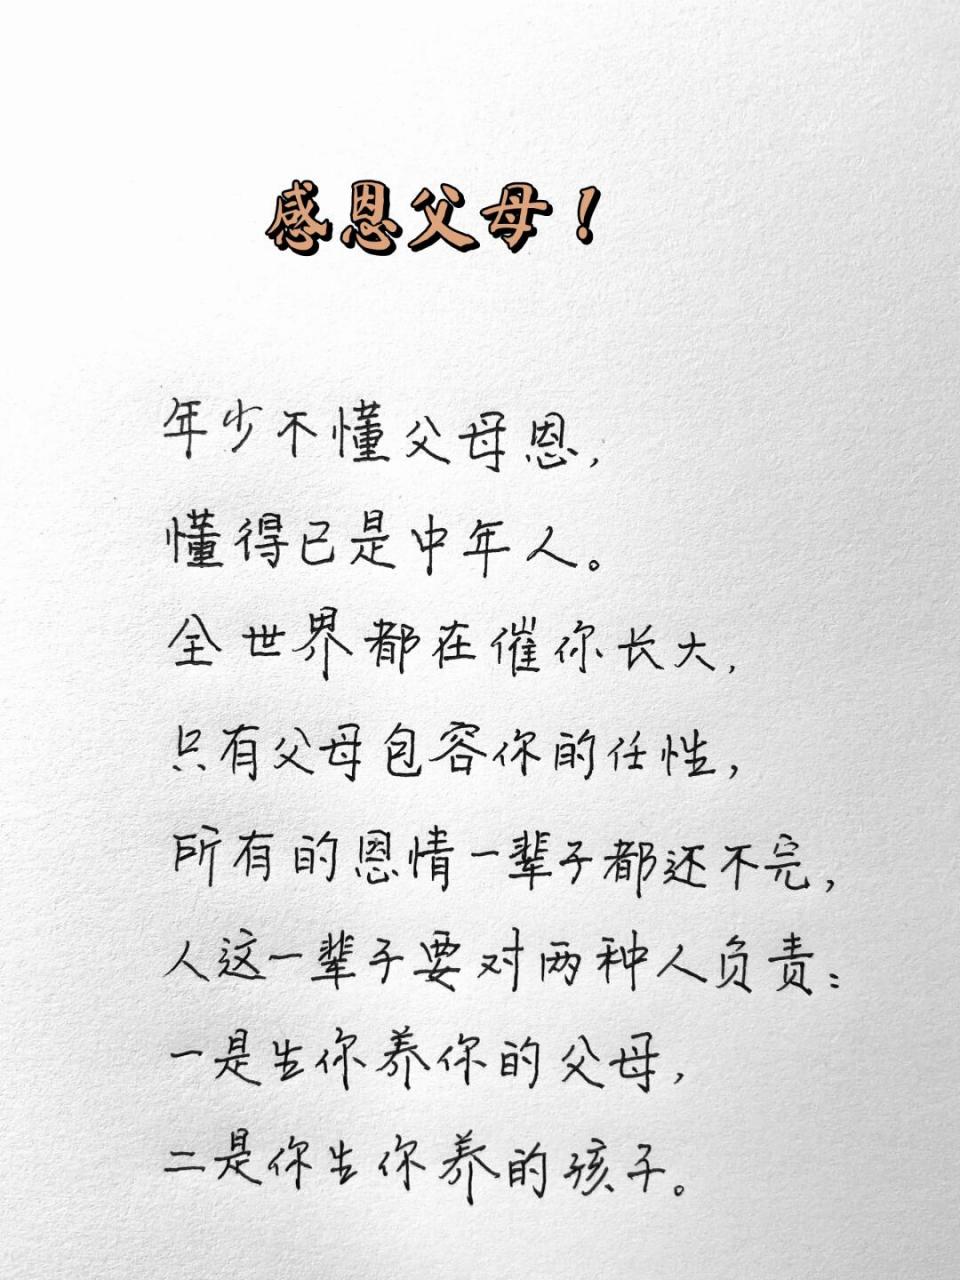 感恩父母！
年少不懂父母恩，
懂得已是中年人。
全世界都在催你长大，
只有父母包容你的任性，
所有的恩情一辈子都还不完，
人这一辈子要对两种人负责：
一是生你养你的父母，
二是你生你养的孩子。